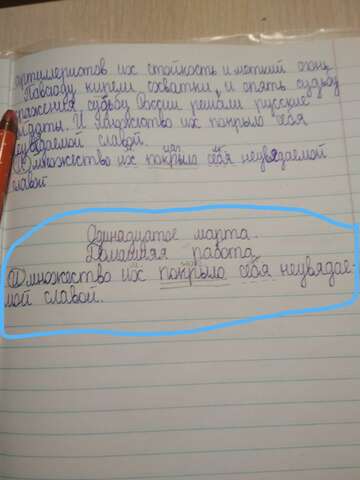 артиллеристов их стойкость и меткий огонь.
Повсюду кипели схватки, и опять судьбу
сражения судьбу России решали русские
солдаты. И множество их покрыло себя
неувядаемой славой.
множество их покрыло себя неувядаемой
славой
Одинадцатое марта.
Домашняя работа
множество их покрыло себя неувядае-
мой славой.